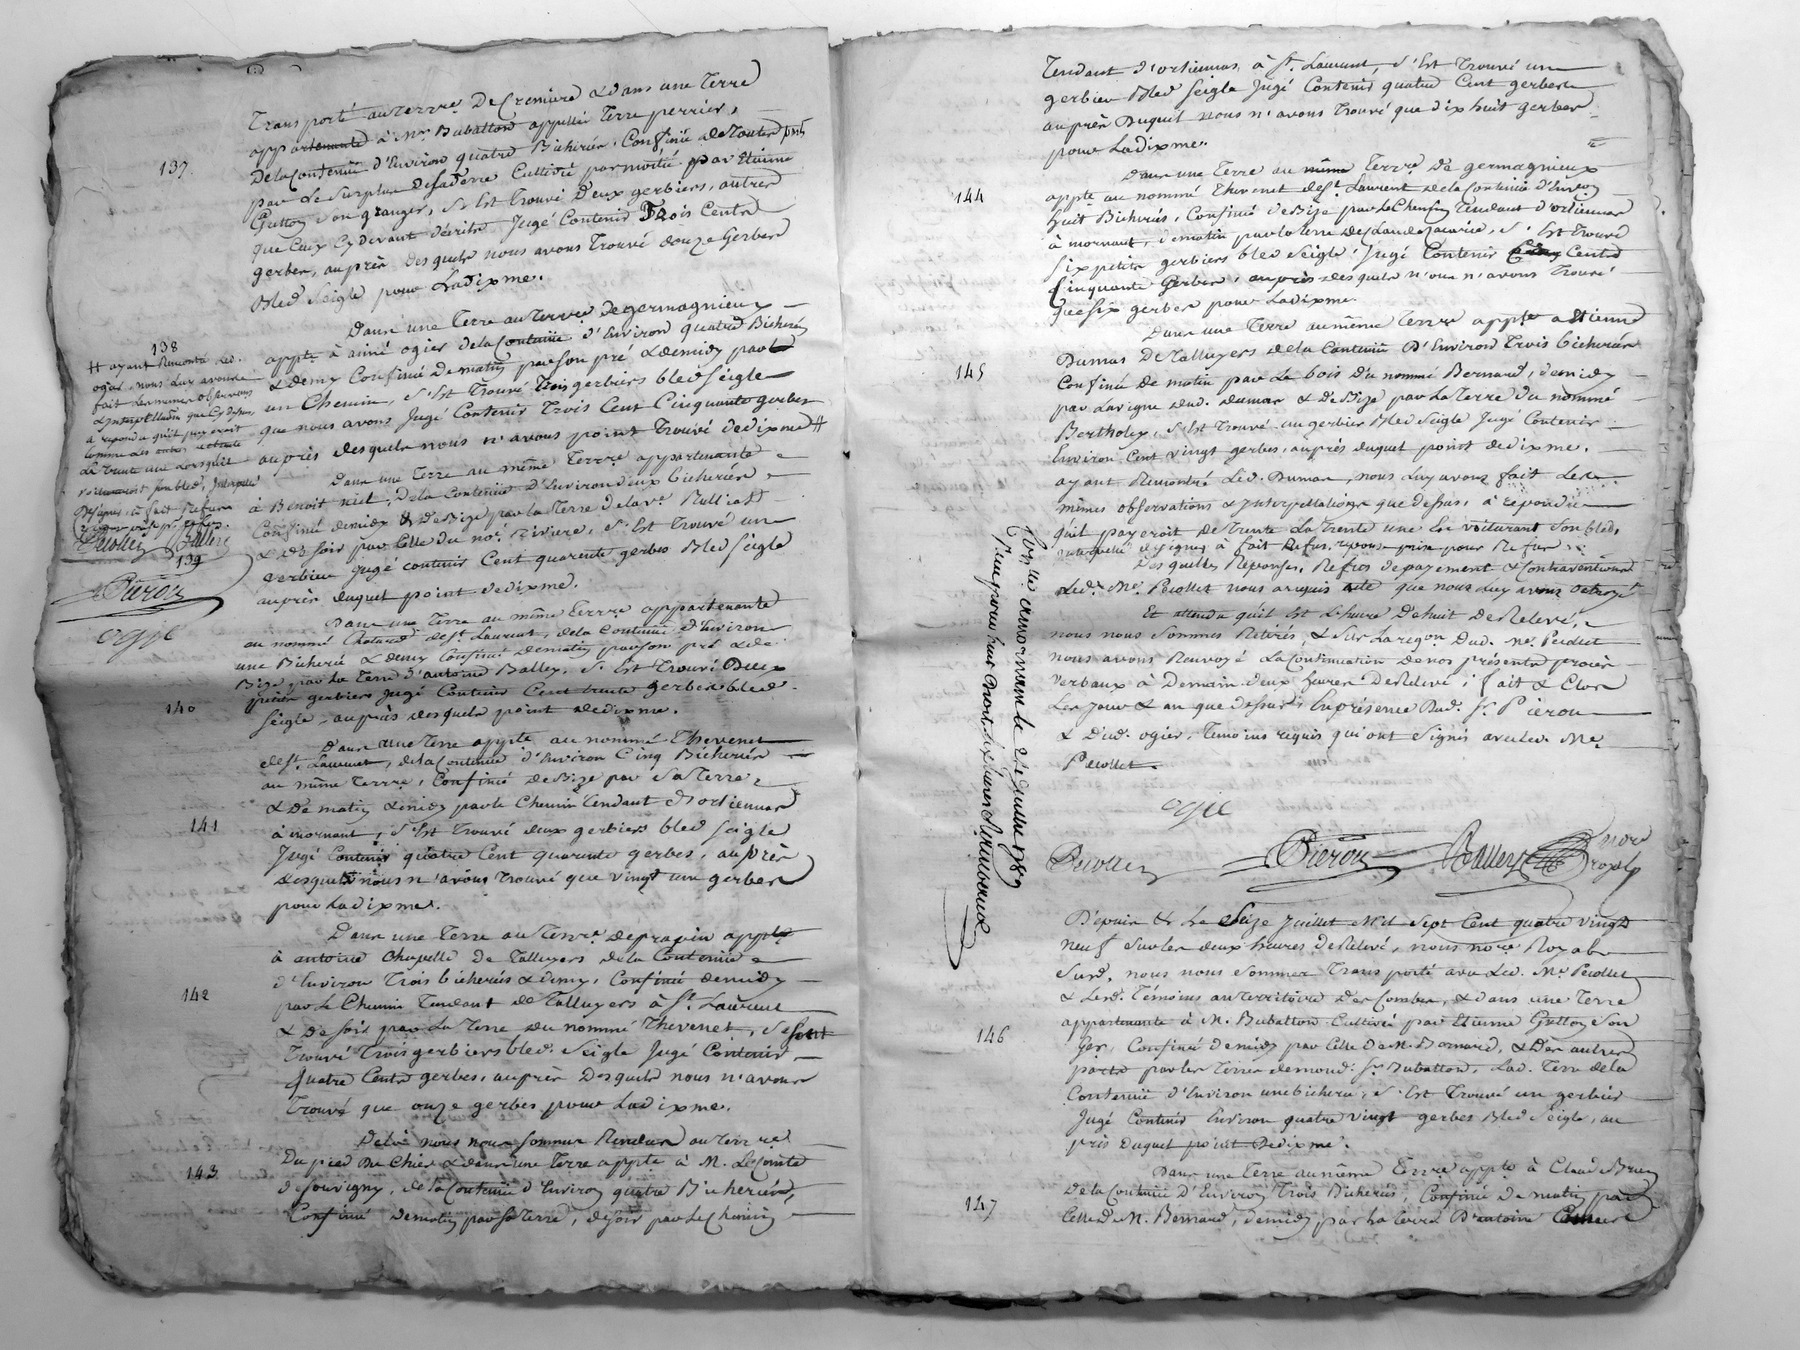 Transporté au Terrre De Cremiere & dans une Terre
137. appartenante à Mr. Dubatton appellée Terre perrier,
De la Contenüe d'Environ quatre Bicherées, Confinée de toutes parts
par Le Surplus De sa Terre Cultivée par moitié par Etienne
Gutton son granger, S'est trouvé Deux gerbiers, autres
que Ceux Cy devant décrits, Jugé Contenir Trois Cents
gerbes, auprès desquels nous avons Trouvé douze Gerbes
Bled Seigle pour La dixme.
Dans une Terre au Terrre de germagnieux
138 appte à aimé ogier de la Contenüe d'Environ quatre Bicherées
& demy Confinée De matin par son pré & de midy par
un Chemin, S'est Trouvé trois gerbiers bled seigle
que nous avons Jugé Contenir Trois Cent Cinquante gerbes
auprès desquels nous n'avons point Trouvé de dixme #
# ayant Remontré Led.
ogier, nous Luy avons
fait Les memes observations
& Interpellation que Cy dessus,
a repondu qu'il payeroit
comme les autres
La trente une Lorsqu'il
voitureroit son bled, Interpellé
De signer, à fait Refus
Pecollet Balley
Pieron
ogije
Dans une Terre au même Terrre appartenante
139 à Benoit Niel, De la Contenüe D'Environ deux bicherées
Confinée de midy & De Bize par la Terre de la ve.
& de soir par Celle du né. Riviere, S'est Trouvé un
Gerbier Jugé contenir Cent quarente gerbes Bled Seigle
auprès duquel point de dixme.
Dans une Terre au même Terrre appartenante
au nommé de St. Laurent, de la Contenüe d'Environ
une Bicherée & demy Confinée de matin par son pré & de
Bize par la Terre d'antoine Balley, S'est Trouvé Deux
140 petits gerbiers Jugé Contenir Cent trente Gerbes bled
Seigle, auprès desquels point de dixme.
Dans une Terre appte. au nommé Thevenet
de St. Laurent, de la Contenüe d'Environ Cinq Bicherées
au même Terrre, Confinée de Bize par Sa Terre
& De matin & midy par le Chemin Tendant d'orlienas
141 à mornant, S'Est Trouvé deux gerbiers bled seigle
Jugé Contenir quatre Cent quarente gerbes, auprès
desquels nous n'avons Trouvé que vingt une gerbes
pour La dixme.
Dans une Terre au Terrre. de prapin appte
à antoine Chapelle de Talluyers de la Contenüe
d'Environ Trois bicherées & demy, Confinée de midy
142 par Le Chemin Tendant de Talluyers à St. Laurent
& De soir par La Terre du nommé Thevenet, Se sont
Trouvé Trois gerbiers bled. Seigle Jugé Contenir
quatre Cents gerbes, auprès Desquels nous n'avons
Trouvé que onze gerbes pour La dixme.
De là nous nous sommes Rendus au terrre
143 Du pied Du Chier & dans une Terre appte à M. Le Comte
de Souvigny, de la Contenüe d'Environ quatre Bicherées,
Confinée de matin par Sa Terre, de soir par Le Chemin
Tendant d'orlienas, à St. Laurent, S'Est Trouvé un
gerbier Bled Seigle Jugé Contenir quatre Cent gerbes
auprès Duquel nous n'avons Trouvé que dix huit gerbes
pour La dixme.
Dans une Terre au même Terrre De germagnieux
144 appte au nommé Thevenet de St. Laurent de la Contenüe d'Environ
huit Bicherées, Confinée de Bize par Le Chemin Tendant d'orlienas
à mornant, de matin par la terre des S'Est Trouvé
six petits gerbiers bled Seigle Jugé Contenir Cents
Cinquante Gerbes, auprès desquels n'ous n'avons Trouvé
que six gerbes pour La dixme.
Dans une Terre au même Terrre appte a Etienne
145 Dumas De Talluyers de la Contenüe D'Environ Trois bicherées
Confinée de matin par Le bois du nommé Bernard, de midy
par La vigne dud. Dumas & de Bize par La Terre du nommé
Bertholey, S'Est Trouvé un gerbier Bled Seigle Jugé Contenir
Environ Cent vingt gerbes, auprès duquel point de dixme.
ayant Remontré Led. Dumas, nous Luy avons fait Les
mêmes observations & Interpellations que dessus, à repondu
qu'il payeroit de Trente La Trente une En voiturant Son bled,
Interpellé de signer à fait Refus, reponse prise pour Refus.
Des quelles Réponses, Refus de payement & Contraventions
Led. Me. Pecollet nous a requis acte que nous Luy avons octroyé
Et attendu qu'il Est L'heure De huit De Relevé,
nous nous Sommes Retirés, & Sur La reqon. Dud. Me. Pecollet
nous avons Renvoyé La Continuation De nos présents procès
verbaux à Demain deux heures De Relevé; fait & Clos
Les Jour & an que dessus, En présence Dud. Sr. Pieron
& Dud. ogier, Temoins requis qui ont Signés avec led. Me.
Pecollet.
ogije
Pecollet Pieron Balley nore
royal
Con.llé a mornant le 21e Juillet 1789
Depuis & Le Seize Juillet Mil Sept Cent quatre vingt
neuf Sur les deux heures de Relevé, nous nore Royal
Susd. nous nous Sommes Transporté avec Led. Me. Pecollet
& Lesd. Témoins au Territoire Des Combes, & dans une Terre
146 appartenante à M. Dubatton Cultivée par Etienne Gutton Son
Ger, Confinée de midy par Celle De M. Bernard, & Des autres
parts par les Terres de mond. Sr. Dubatton, Lad. Terre de la
Contenüe d'Environ une bicherée, S'Est Trouvé un gerbier
Jugé Contenir Environ quatre vingt gerbes Bled Seigle, au
près Duquel point De dixme.
Dans une Terre au même Terrre appte à Claude Brun
147 De la Contenüe D'Environ Trois Bicherées, Confinée De matin par
Celle De M. Bernard, de midy par La terre D'antoine